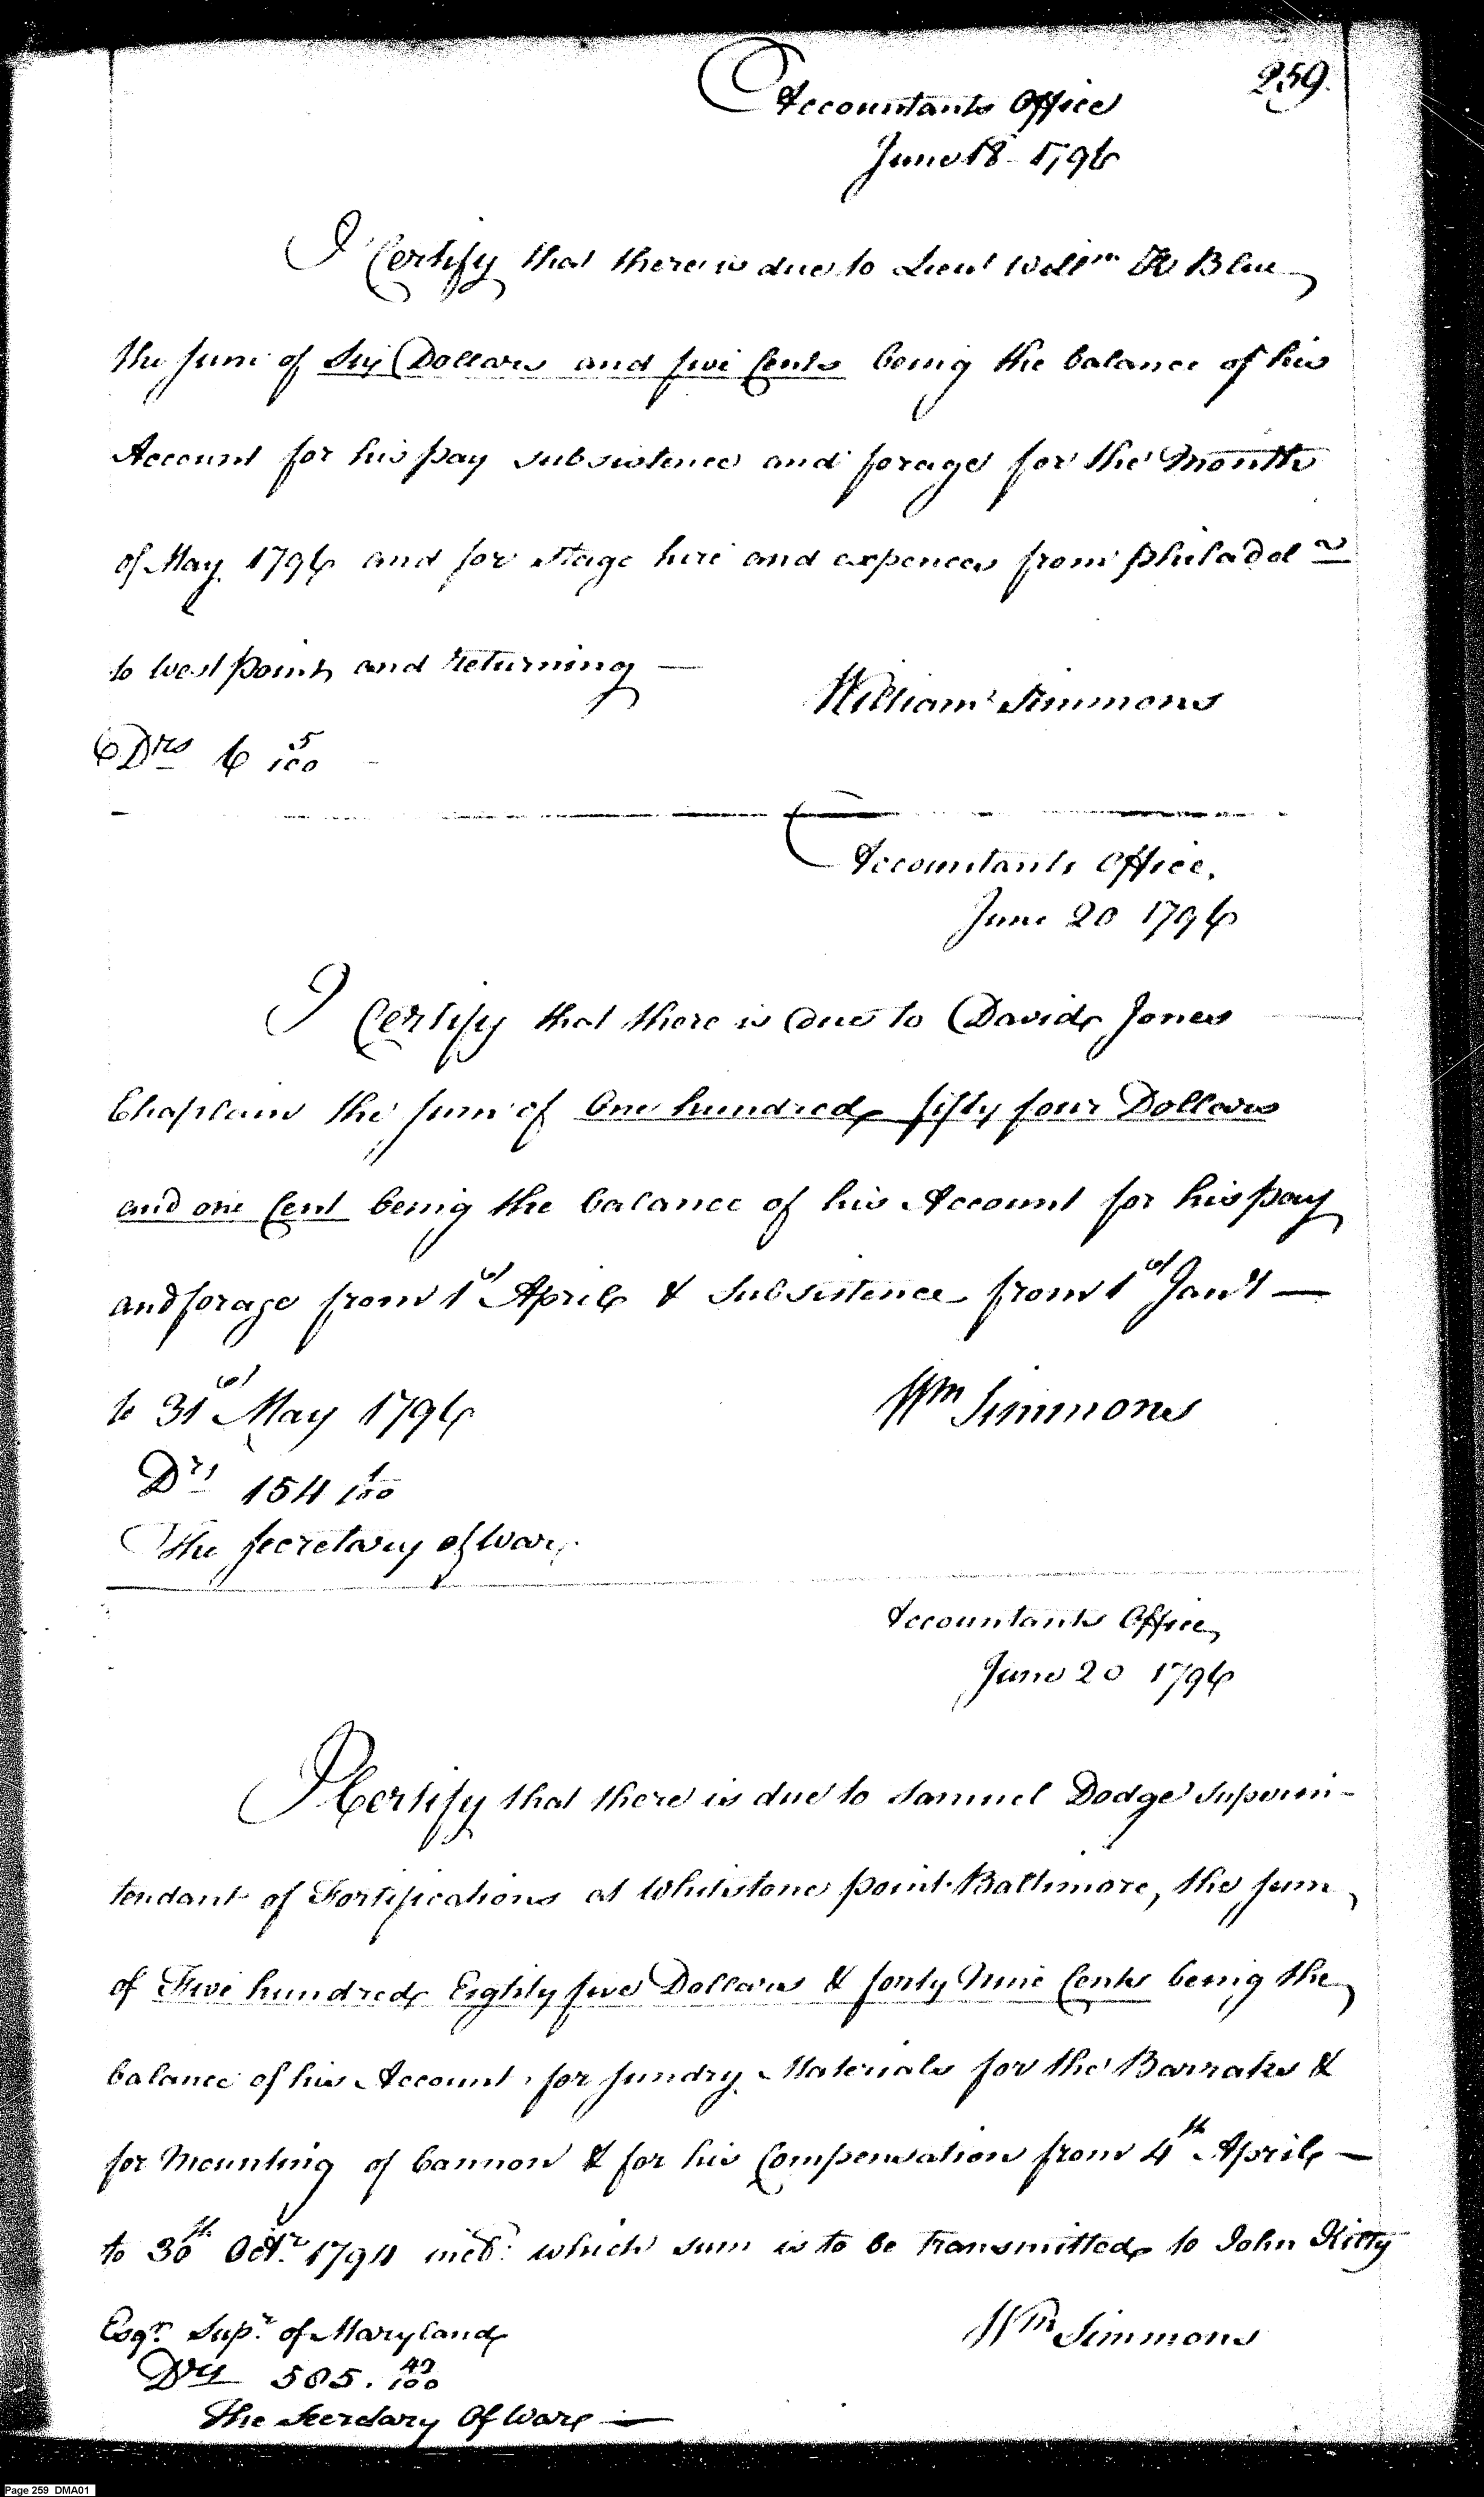 259.
Accountants Office
June 18 1796
I Certify that there is due to Lieut Willm K Blue
the sum of Six Dollars and five Cents being the balance of his
Account for his pay subsistence and forage for the Month
of May 1796 and for Stage hire and expences from philadel
to West point and returning —
William Simmons
Drs 6 5/100
Accountants Office.
June 20 1796
I Certify that there is due to David Jones
Chaplain the sum of One hundred fifty four Dollars
and one Cent being the balance of his Account for his pay
and forage from 1st April & subsistence from 1st Jany —
to 31st May 1796
Wm Simmons
Drs 154 1/100
The Secretary of War
Accountants Office
June 20 1796
I Certify that there is due to Samuel Dodge Superin-
tendant of Fortifications at Whitstone point Baltimore, the sum
of Five hundred Eighty five Dollars & forty Nine Cents being the
balance of his Account for sundry Materials for the Barraks &
for Mounting of Cannon & for his Compensation from 4th April —
to 30th Octr. 1794 incl: which sum is to be transmitted to John Kilty
Esqr. Supr. of Maryland
Wm Simmons
Drs 585. 49/100
The Secretary Of War —
Page 259 DMA01